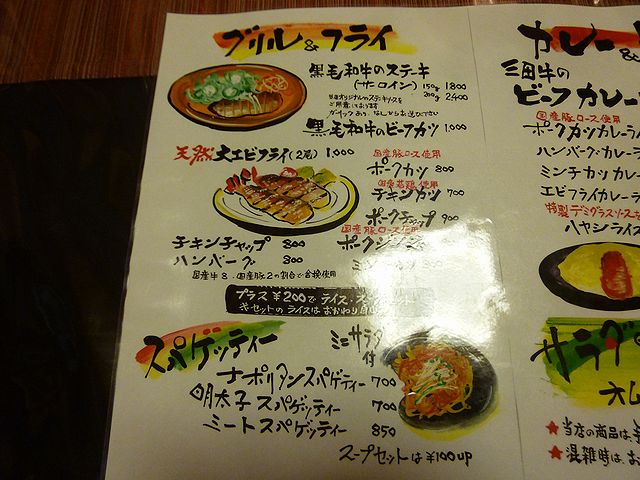 グリル&フライ
黒毛和牛のステーキ
(サーロイン) 150g 1800
200g 2400
黒毛和牛のビーフカツ 1,000
天然大エビフライ(2尾) 1,000
国産豚ロース使用
ポークカツ 800
国産若鶏使用
チキンカツ 700
ポークチャップ 900
国産豚ロース使用
チキンチャップ 800
ポークジン
ハンバーグ 800
国産牛8、国産豚2の割合で合挽使用
プラス¥200で ライス・ス
セットの ライスは おかわり自由
スパゲッティー
ミニサラダ付
ナポリタンスパゲティー 700
明太子スパゲッティー 700
ミートスパゲッティー 850
スープセットは¥100up
カレー &
三田牛の
ビーフカレー
国産豚ロース使用
ポークカツカレー
ハンバーグカレー
ミンチカツカレー
エビフライカレー
特製デミグラスソース
ハヤシライス
サラダ
★当店の商品は、
★混雑時は、お